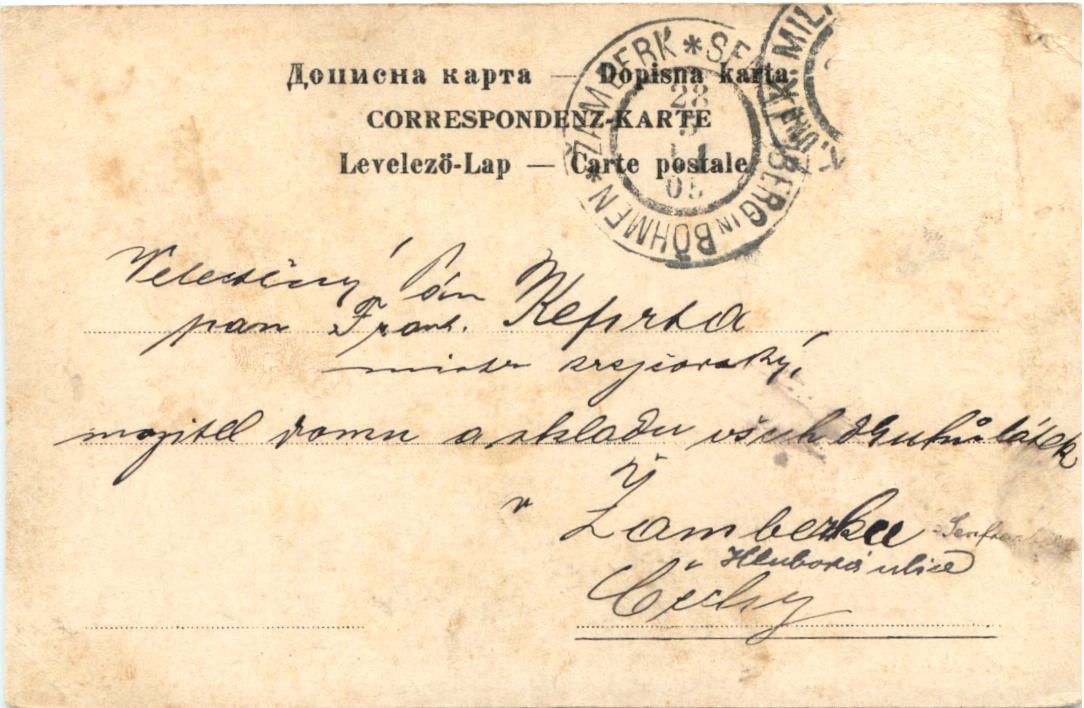 Дописна карта — Dopisna karta
CORRESPONDENZ-KARTE
Levelező-Lap — Carte postale
ŽAMBERK * SE BERG IN BÖHMEN *
28
05
K. UND K. MIL
Velectěný Pán
pan Frant. Keprta
mistr krejčovský,
majitel domu a skladu všech druhů látek
v Žamberku
Hluboká ulice
Čechy